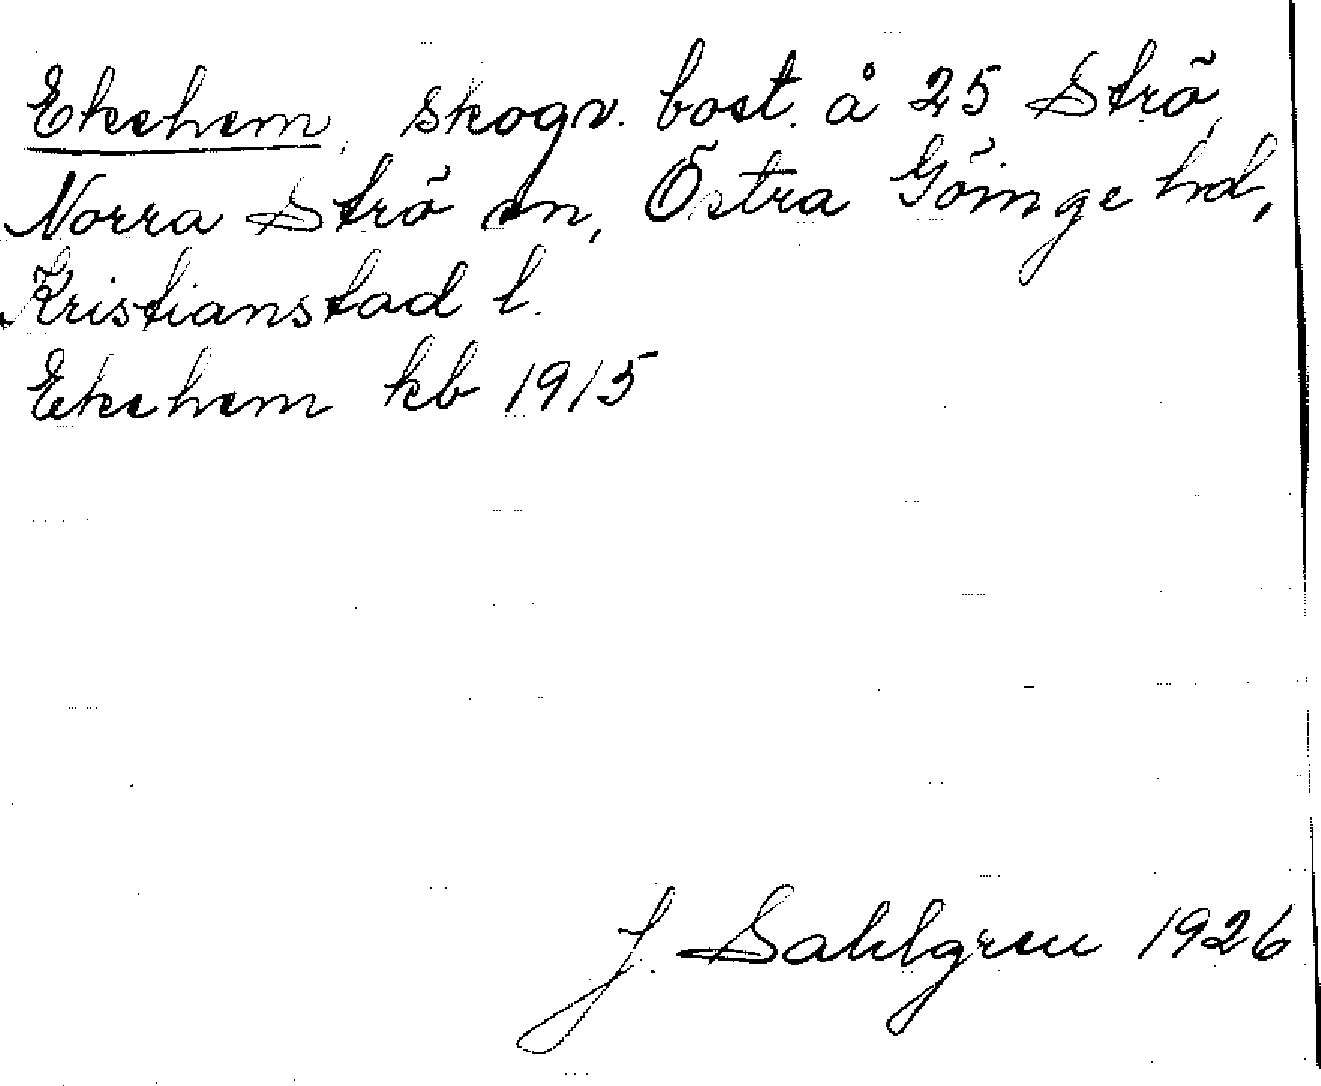 Ekehem, skogv. bost. å 25 Strö,
Norra Strö sn, Östra Göinge hd,
Kristianstad l.
Ekehem kb 1915
J. Sahlgren 1926